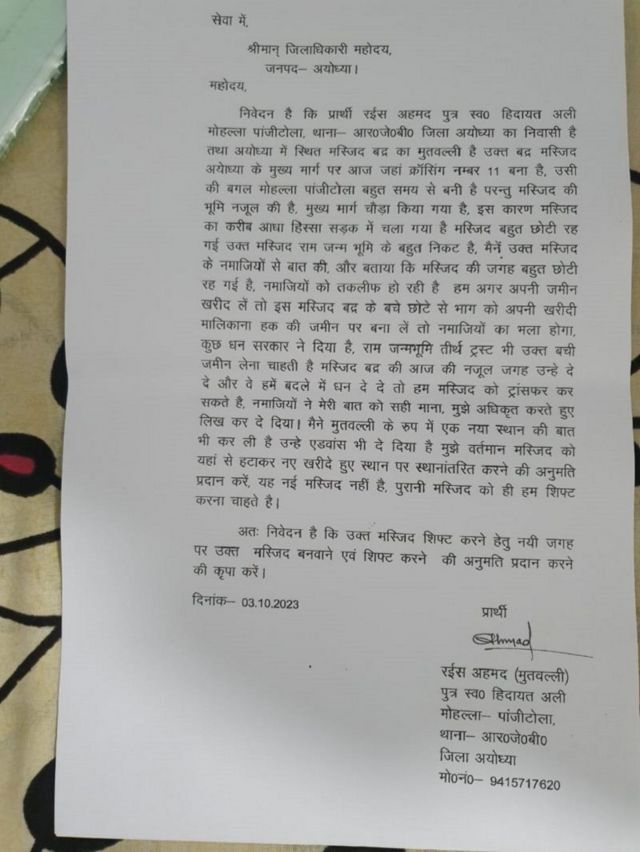 सेवा में,
श्रीमान् जिलाधिकारी महोदय,
जनपद– अयोध्या।
महोदय,
निवेदन है कि प्रार्थी रईस अहमद पुत्र स्व0 हिदायत अली
मोहल्ला पांजीटोला, थाना– आर0जे0बी0 जिला अयोध्या का निवासी है
तथा अयोध्या में स्थित मस्जिद बद्र का मुतवल्ली है उक्त बद्र मस्जिद
अयोध्या के मुख्य मार्ग पर आज जहां क्रॉसिंग नम्बर 11 बना है, उसी
की बगल मोहल्ला पांजीटोला बहुत समय से बनी है परन्तु मस्जिद की
भूमि नजूल की है, मुख्य मार्ग चौड़ा किया गया है, इस कारण मस्जिद
का करीब आधा हिस्सा सड़क में चला गया है मस्जिद बहुत छोटी रह
गई उक्त मस्जिद राम जन्म भूमि के बहुत निकट है, मैनें उक्त मस्जिद
के नमाजियों से बात की, और बताया कि मस्जिद की जगह बहुत छोटी
रह गई है, नमाजियों को तकलीफ हो रही है हम अगर अपनी जमीन
खरीद लें तो इस मस्जिद बद्र के बचे छोटे से भाग को अपनी खरीदी
मालिकाना हक की जमीन पर बना लें तो नमाजियों का भला होगा,
कुछ धन सरकार ने दिया है, राम जन्मभूमि तीर्थ ट्रस्ट भी उक्त बची
जमीन लेना चाहती है मस्जिद बद्र की आज की नजूल जगह उन्हे दे
दे और वे हमें बदले में धन दे दे तो हम मस्जिद को ट्रांसफर कर
सकते है, नमाजियों ने मेरी बात को सही माना, मुझे अधिकृत करते हुए
लिख कर दे दिया। मैने मुतवल्ली के रुप में एक नया स्थान की बात
भी कर ली है उन्हे एडवांस भी दे दिया है मुझे वर्तमान मस्जिद को
यहां से हटाकर नए खरीदे हुए स्थान पर स्थानांतरित करने की अनुमति
प्रदान करें, यह नई मस्जिद नहीं है, पुरानी मस्जिद को ही हम शिफ्ट
करना चाहते है।
अतः निवेदन है कि उक्त मस्जिद शिफ्ट करने हेतु नयी जगह
पर उक्त मस्जिद बनवाने एवं शिफ्ट करने की अनुमति प्रदान करने
की कृपा करें।
दिनांक– 03.10.2023
प्रार्थी
रईस अहमद (मुतवल्ली)
पुत्र स्व0 हिदायत अली
मोहल्ला– पांजीटोला,
थाना– आर0जे0बी0
जिला अयोध्या
मो0नं0– 9415717620